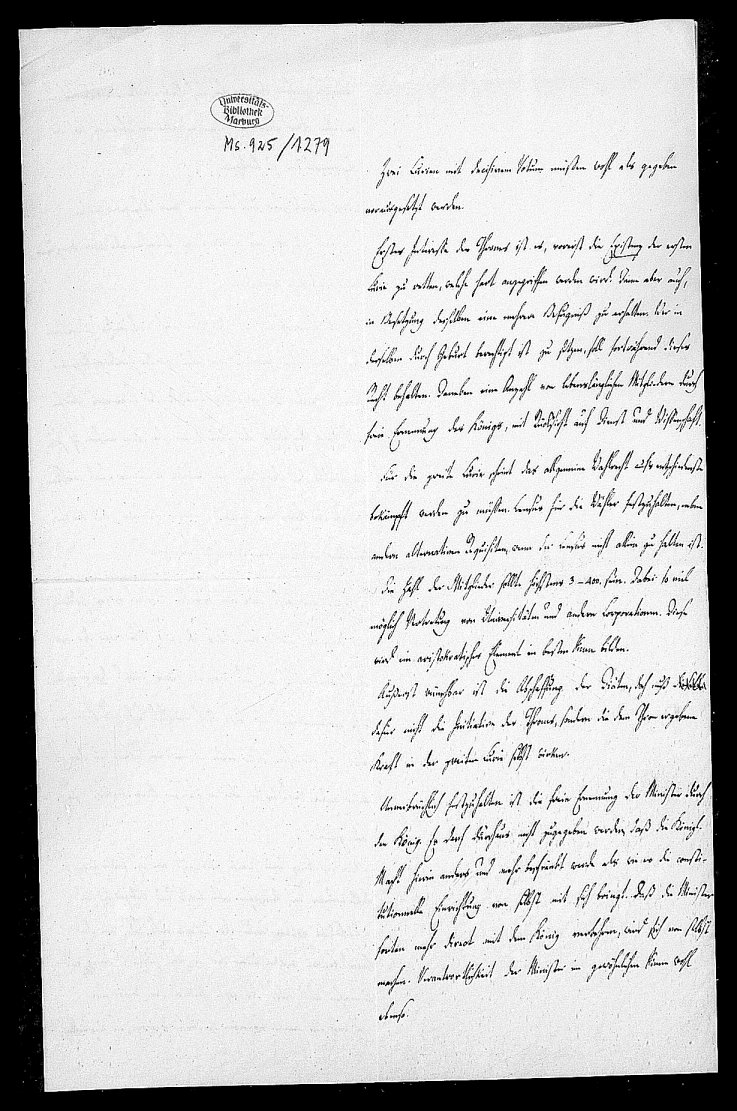 Universitäts-
Bibliothek
Marburg
Ms. 925/1279
Zwei Curien mit decisivem Votum müssen wohl als gegeben
vorausgesetzt werden.
Erstes Interesse des Thrones ist es, vorerst die Existenz der ersten
Curie zu retten, welche hart angegriffen werden wird. Dann aber auch,
in Besetzung derselben eine mehrere Befugniß zu erhalten. Wer in
derselben durch Geburt berechtigt ist zu sitzen, soll fortwährend dieses
Recht behalten. Daneben eine Anzahl von lebenslänglichen Mitgliedern durch
freie Ernennung des Königs, mit Rücksicht auf Dienst und Wissenschaft.
Für die zweite Curie scheint das allgemeine Wahlrecht aufs entschiedenste
bekämpft werden zu müssen. Census für die Wähler festzuhalten, neben
andern alternativen Requisiten, wenn der Census nicht allein zu halten ist.
Die Zahl der Mitglieder sollte höchstens 3–400. sein. Dabei so viel
möglich Vertretung von Universitäten und andern Corporationen. Diese
wird ein aristokratisches Element im besten Sinne bilden.
Äußerst wünschbar ist die Abschaffung der Diäten, doch muß
dafür nicht die Initiative des Thrones, sondern die dem Thron ergebene
Kraft in der zweiten Curie selbst wirken.
Unverbrüchlich festzuhalten ist die freie Ernennung der Minister durch
den König. Es darf durchaus nicht zugegeben werden, daß die Königl.
Macht hierin anders und mehr beschränkt werde als wie es die consti-
tutionnelle Einrichtung von selbst mit sich bringt. Daß die Minister
fortan mehr direct mit dem König verkehren, wird sich von selbst
machen. Verantwortlichkeit der Minister im gewöhnlichen Sinne wohl
ebenso.